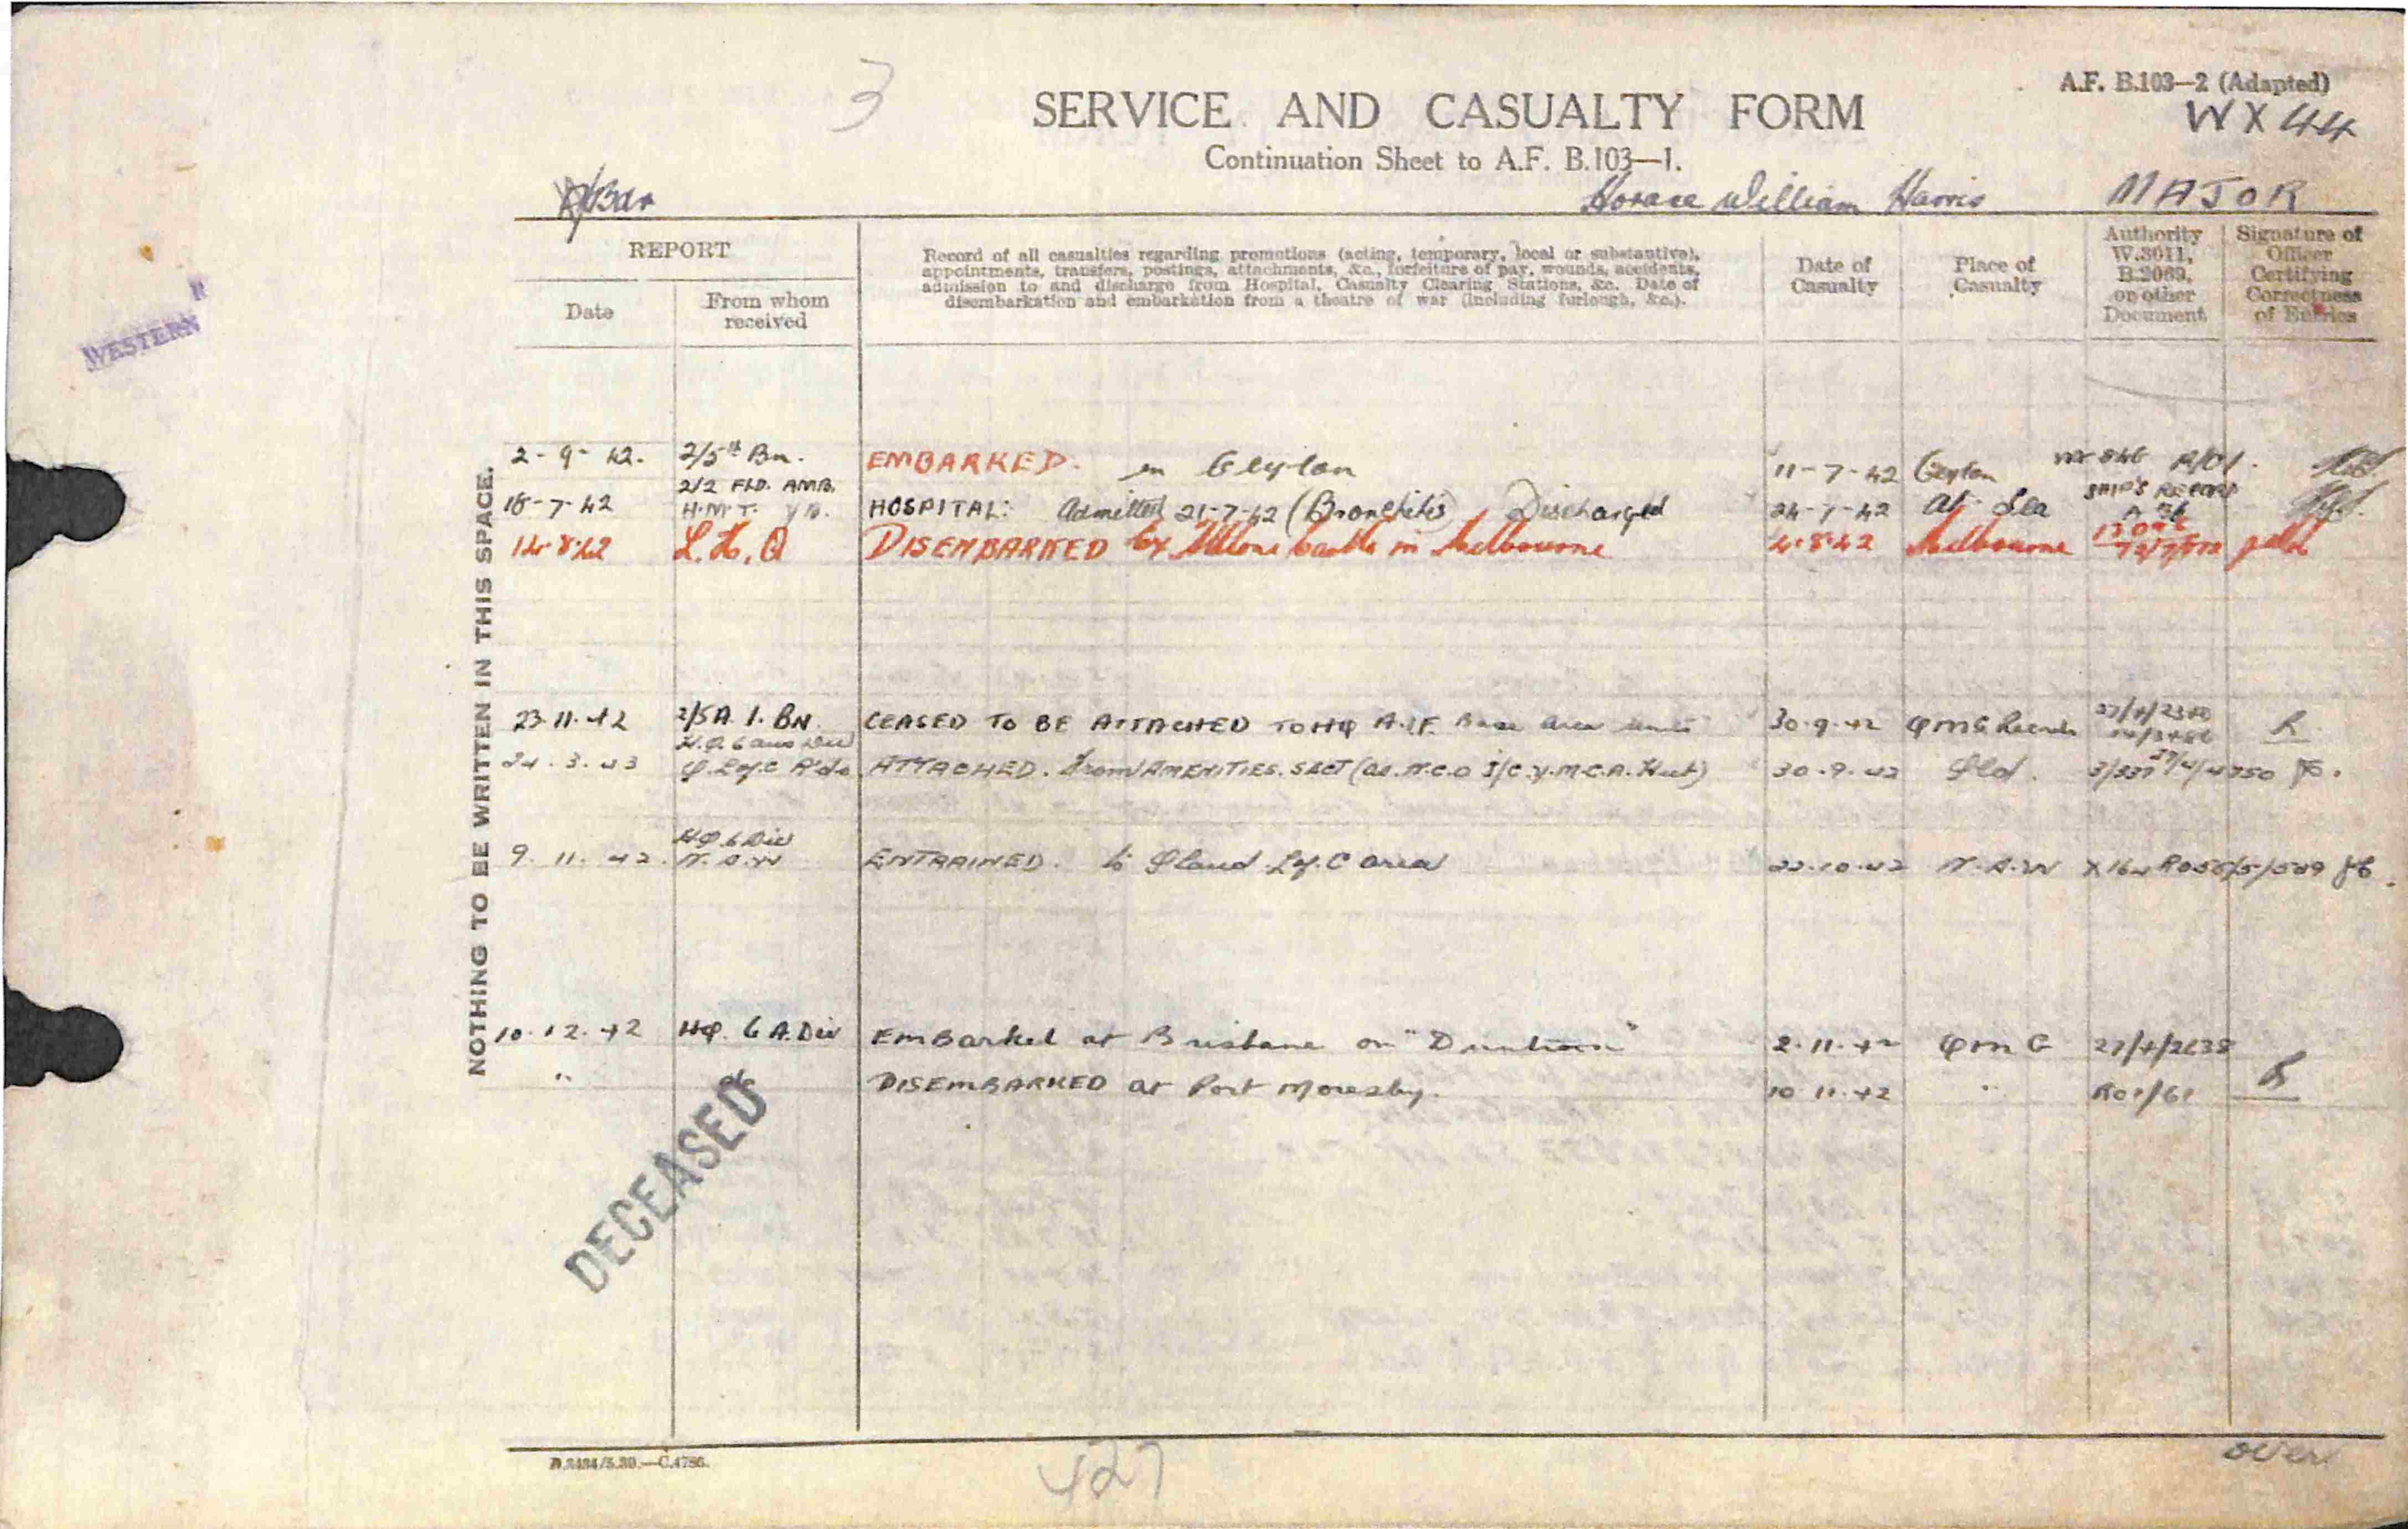 3
A.F. B.103—2 (Adapted)
SERVICE AND CASUALTY FORM
WX44
Continuation Sheet to A.F. B.103—1.
Horace William Harris MAJOR
REPORT
Date
From whom
received
Record of all casualties regarding promotions (acting, temporary, local or substantive),
appointments, transfers, postings, attachments, &c., forfeiture of pay, wounds, accidents,
admission to and discharge from Hospital, Casualty Clearing Stations, &c. Date of
disembarkation and embarkation from a theatre of war (including furlough, &c.).
Date of
Casualty
Place of
Casualty
Authority
W.3011,
B.2069,
or other
Document
Signature of
Officer
Certifying
Correctness
of Entries
WESTERN
NOTHING TO BE WRITTEN IN THIS SPACE.
2-9-42. 2/5th Bn. EMBARKED. in Ceylon 11-7-42 Ceylon
2/2 FLD. AMB. SHIP'S RECORD
18-7-42 H.M.T. HOSPITAL: Admitted 21-7-42 (Bronchitis) Discharged 24-7-42 At Sea
14-8-42 L.H.Q DISEMBARKED in Melbourne 4-8-42 Melbourne
23.11.42 2/5 A.I. BN. CEASED TO BE ATTACHED TO HQ A.I.F. Base area 30.9.42 QMG Records
24.3.43 ATTACHED. From AMENITIES. SECT (as N.C.O I/C Y.M.C.A. Hut) 30.9.42 Qld.
HQ 6 Div
9.11.42. N.S.W ENTRAINED. to Qland L of C area 22.10.42 N.S.W
10.12.42 HQ. 6 A. Div Embarked at Brisbane on "Duntroon" 2.11.42 QMG
" DISEMBARKED at Port Moresby. 10.11.42 "
DECEASED
D.2484/5.39.—C.4786.
427
over